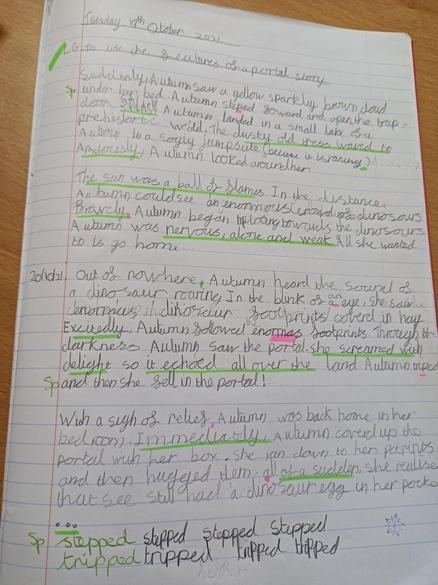 Tuesday 19th October 2021
LO to use the features of a portal story
Suddenly, Autumn saw a yellow sparkly brown cloud
Sp under her bed. Autumn steped forward and open the trap-
door SPLASH Autumn landed in a small lake of a
prehistoric world. The dusty old trees waved to
Autumn in a soggy jumpsuite (becuse
Anxiously, Autumn looked around her.
The sun was a ball of flames. In the distance,
Autumn could see an enormous crowd of dinosours
Bravely, Autumn began tiptoeing towards the dinosours
Autumn was nervous, alone and weak. All she wanted
to is go home.
20/10/21 Out of nowhere, Autumn heard the sound of
a dinosaur roaring. In the blink of an eye, she saw
enormous dinosaur footprints coverd in hay
Excitedly, Autumn followed enormas footprints. Through the
darkness Autumn saw the portal. she screamed with
delight so it echoed all over the land Autumn triped
Sp and then she fell in the portal!
With a sigh of relief, Autumn was back home in her
bedroom. Immediately, Autumn coverd up the
portal with her box. she ran down to her parents
and then hugged them. all of a sudden, she realise
that see still had a dinosaur egg in her pocke
Sp stepped stepped stepped stepped
tripped tripped tripped tripped